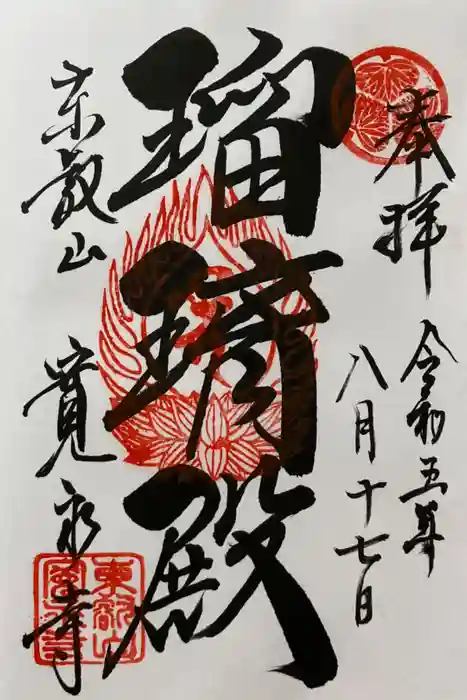 奉拝
令和五年
八月十七日
瑠璃殿
東叡山
寛永寺
東叡山